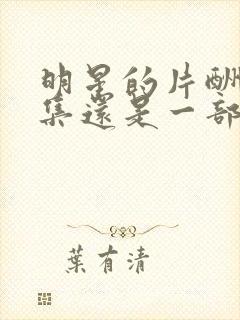 明星的片酬
集還是一部
葉有清